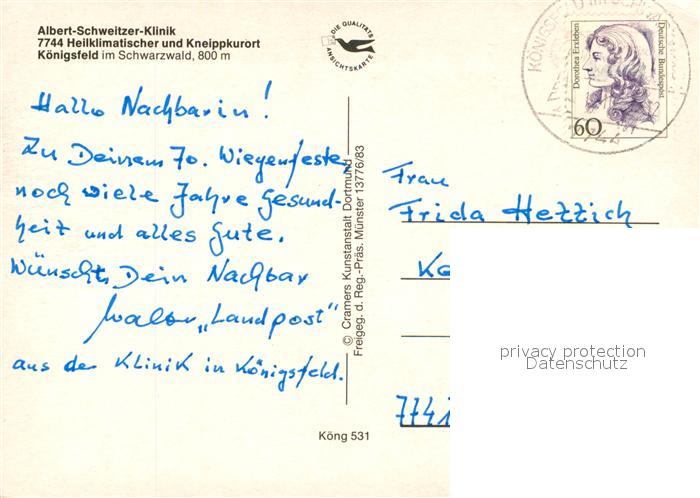 Albert-Schweitzer-Klinik
7744 Heilklimatischer und Kneippkurort
Königsfeld im Schwarzwald, 800 m
DIE QUALITÄTS
ANSICHTSKARTE
Hallo Nachbarin!
Zu Deinem 70. Wiegenfeste
noch viele Jahre Gesund-
heit und alles Gute.
Wünscht Dein Nachbar
Walter „Landpost"
aus der Klinik in Königsfeld.
© Cramers Kunstanstalt Dortmund
Freigeg. d. Reg.-Präs. Münster 13776/83
Köng 531
Dorothea Erxleben
Deutsche Bundespost
60
Frau
Frida Hettich
privacy protection
Datenschutz